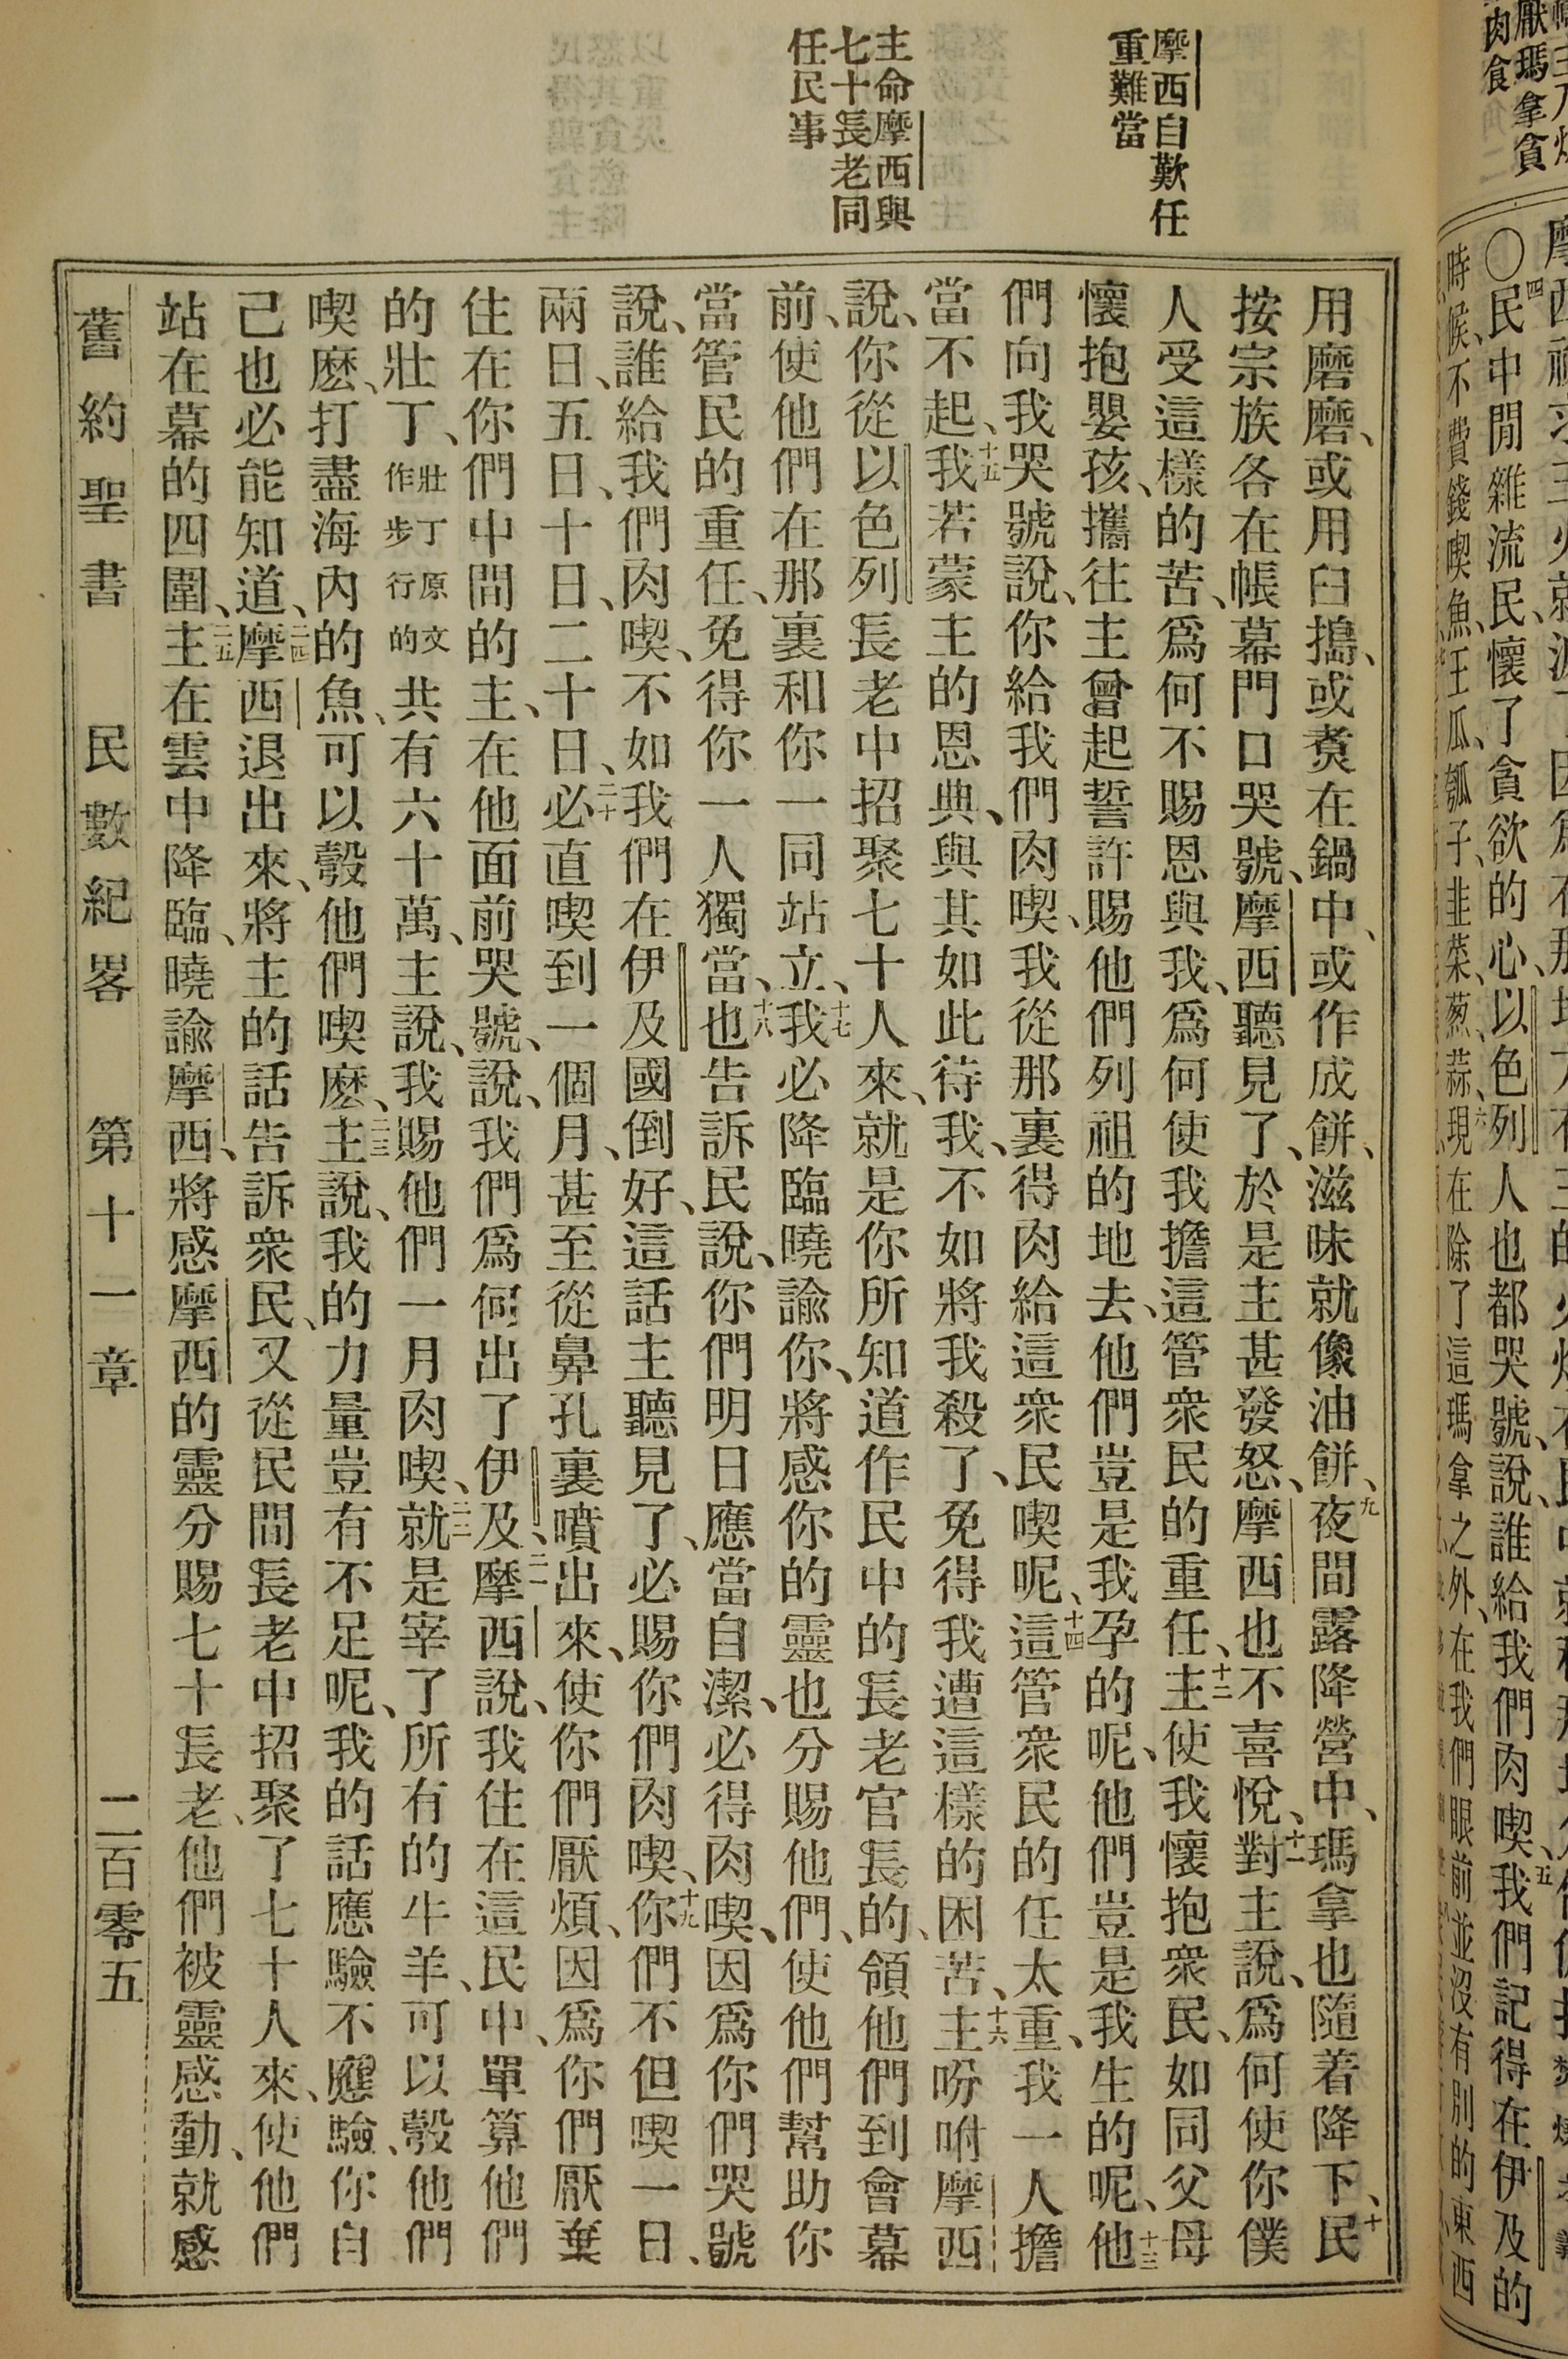 摩西自歎任
重難當
主命摩西與
七十長老同
任民事
用磨磨、或用臼搗、或煑在鍋中、或作成餅、滋味就像油餅、九夜間露降營中、瑪拿也隨着降下、十民
按宗族各在帳幕門口哭號、摩西聽見了、於是主甚發怒、摩西也不喜悅、十一對主說、爲何使你僕
人受這樣的苦、爲何不賜恩與我、爲何使我擔這管衆民的重任、十二主使我懷抱衆民、如同父母
懷抱嬰孩、攜往主曾起誓許賜他們列祖的地去、他們豈是我孕的呢、他們豈是我生的呢、十三他
們向我哭號說、你給我們肉喫、我從那裏得肉給這衆民喫呢、十四這管衆民的任太重、我一人擔
當不起、十五我若蒙主的恩典、與其如此待我、不如將我殺了、免得我遭這樣的困苦、十六主吩咐摩西
說、你從以色列長老中招聚七十人來、就是你所知道作民中的長老官長的、領他們到會幕
前、使他們在那裏和你一同站立、十七我必降臨曉諭你、將感你的靈也分賜他們、使他們幫助你
當管民的重任、免得你一人獨當、十八也告訴民說、你們明日應當自潔、必得肉喫、因爲你們哭號
說、誰給我們肉喫、不如我們在伊及國倒好、這話主聽見了、必賜你們肉喫、十九你們不但喫一日、
兩日、五日、十日、二十日、二十必直喫到一個月、甚至從鼻孔裏噴出來、使你們厭煩、因爲你們厭棄
住在你們中間的主、在他面前哭號、說、我們爲何出了伊及、二一摩西說、我住在這民中、單算他們
的壯丁、壯丁原文作步行的共有六十萬、主說、我賜他們一月肉喫、二二就是宰了所有的牛羊、可以彀他們
喫麽、打盡海內的魚、可以彀他們喫麽、二三主說、我的力量豈有不足呢、我的話應驗不應驗、你自
己也必能知道、二四摩西退出來、將主的話告訴衆民、又從民間長老中招聚了七十人來、使他們
站在幕的四圍、二五主在雲中降臨、曉諭摩西、將感摩西的靈分賜七十長老、他們被靈感動、就感
舊約聖書 民數紀畧 第十一章 二百零五
厭瑪拿貪
肉食
○四民中閒雜流民、懷了貪欲的心、以色列人也都哭號、說、誰給我們肉喫、五我們記得在伊及的
時候、不費錢喫魚、王瓜、瓠子、韭菜、葱、蒜、六現在除了這瑪拿之外、在我們眼前並沒有別的東西